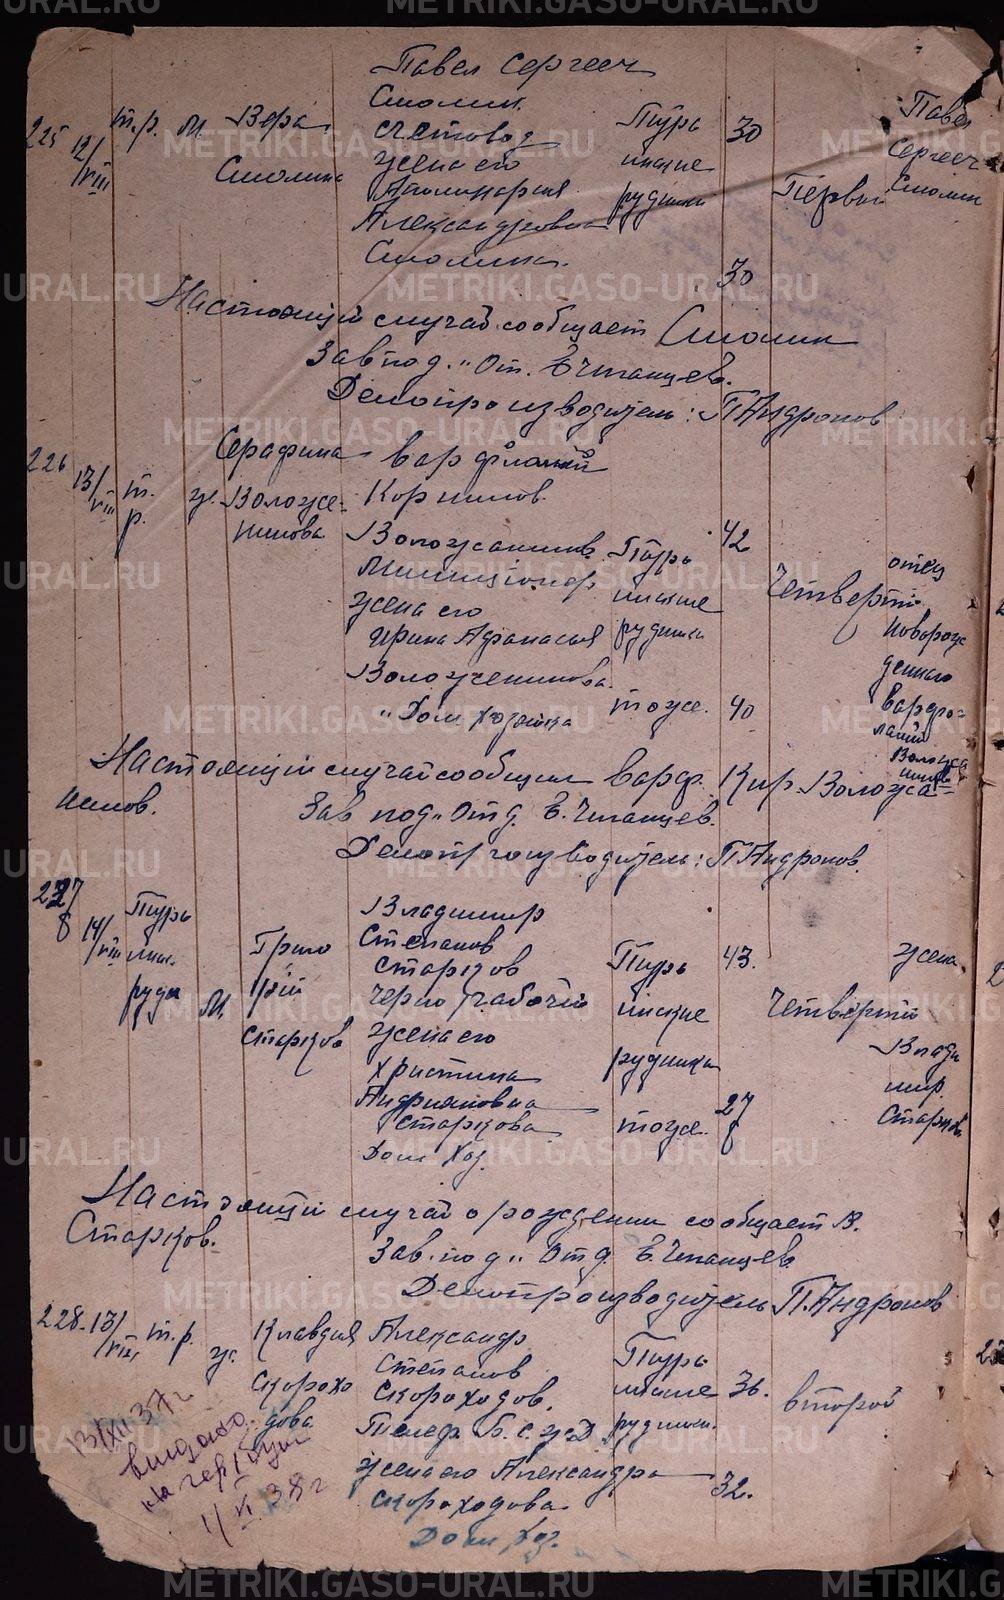 Павел Сергееч
Смолин
225 12/VIII т.р. М. Вера Смолина
счетовод
жена его
Аполинария
Александровна
Смолина
Турь
инские
рудники
30
Первый
Павел
Сергееч
Смолин
30
Настоящий случай сообщает Смолин
Зав под. "От. Е Чпанцев.
Делопроизводитель: П Андронов
226 13/VIII т.р. ж. Серафима Воложе-
нинова
Варфоломей
Корнилов.
Воложанинов
Милиционер
жена его
Ирина Афанасья
Воложенинова.
"Дом хозяйка
Турь
инские
рудника
42
тоже. 40
Четверты
отец
новорож
денного
Варфо-
ломей
Воложа
нинов
Настоящий случай сообщил Варф. Кир. Воложа=
нинов.
Зав под "Отд. Е. Чпанцев.
Делопроизводитель: П Андронов.
227 14/VIII Турь
инс.
рудн
М.
Григо
рий
Старков
Владимир
Степанов
Старков
Черно рабочий
жена его
Христина
Андрияновна
Старкова
Дом Хоз.
Турь
инские
рудника
43.
тоже. 27
Четверты
жена
Влади
мир.
Старков
Настоящий случай о рождении сообщает В.
Старков.
Зав. под "Отд. Е. Чпанцев
Делопроизводитель П. Андронов
228. 13/VIII т.р. ж. Клавдия
Скорохо
дова.
Александр
Степанов
Скороходов.
Телеф Б. с. ж Д
жена его Александра
Скороходова
Дом Хоз.
Турь
инские
рудники.
36.
32.
второй
13/XII 37 г
выдано.
1/VI 38 г
METRIKI.GASO-URAL.RU